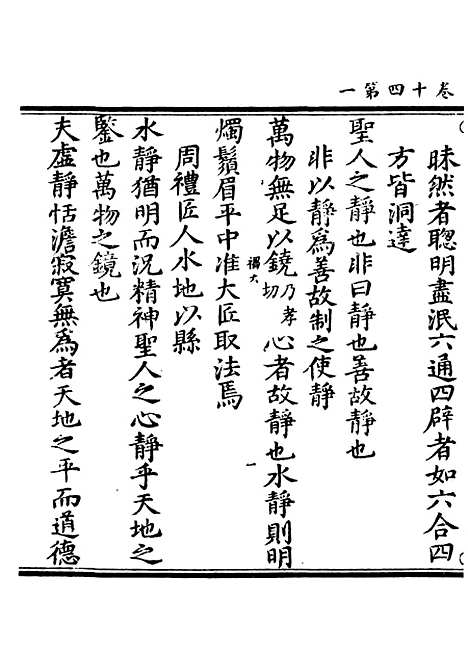 卷十四第一
昧然者聦明盡泯六通四辟者如六合四
方皆洞達
聖人之靜也非曰靜也善故靜也
非以靜爲善故制之使靜
萬物無足以鐃乃孝切心者故靜也水靜則明
燭鬚眉平中准大匠取法焉
周禮匠人水地以縣
水靜猶明而況精神聖人之心靜乎天地之
鑒也萬物之鏡也
夫虛靜恬澹寂寞無爲者天地之平而道德